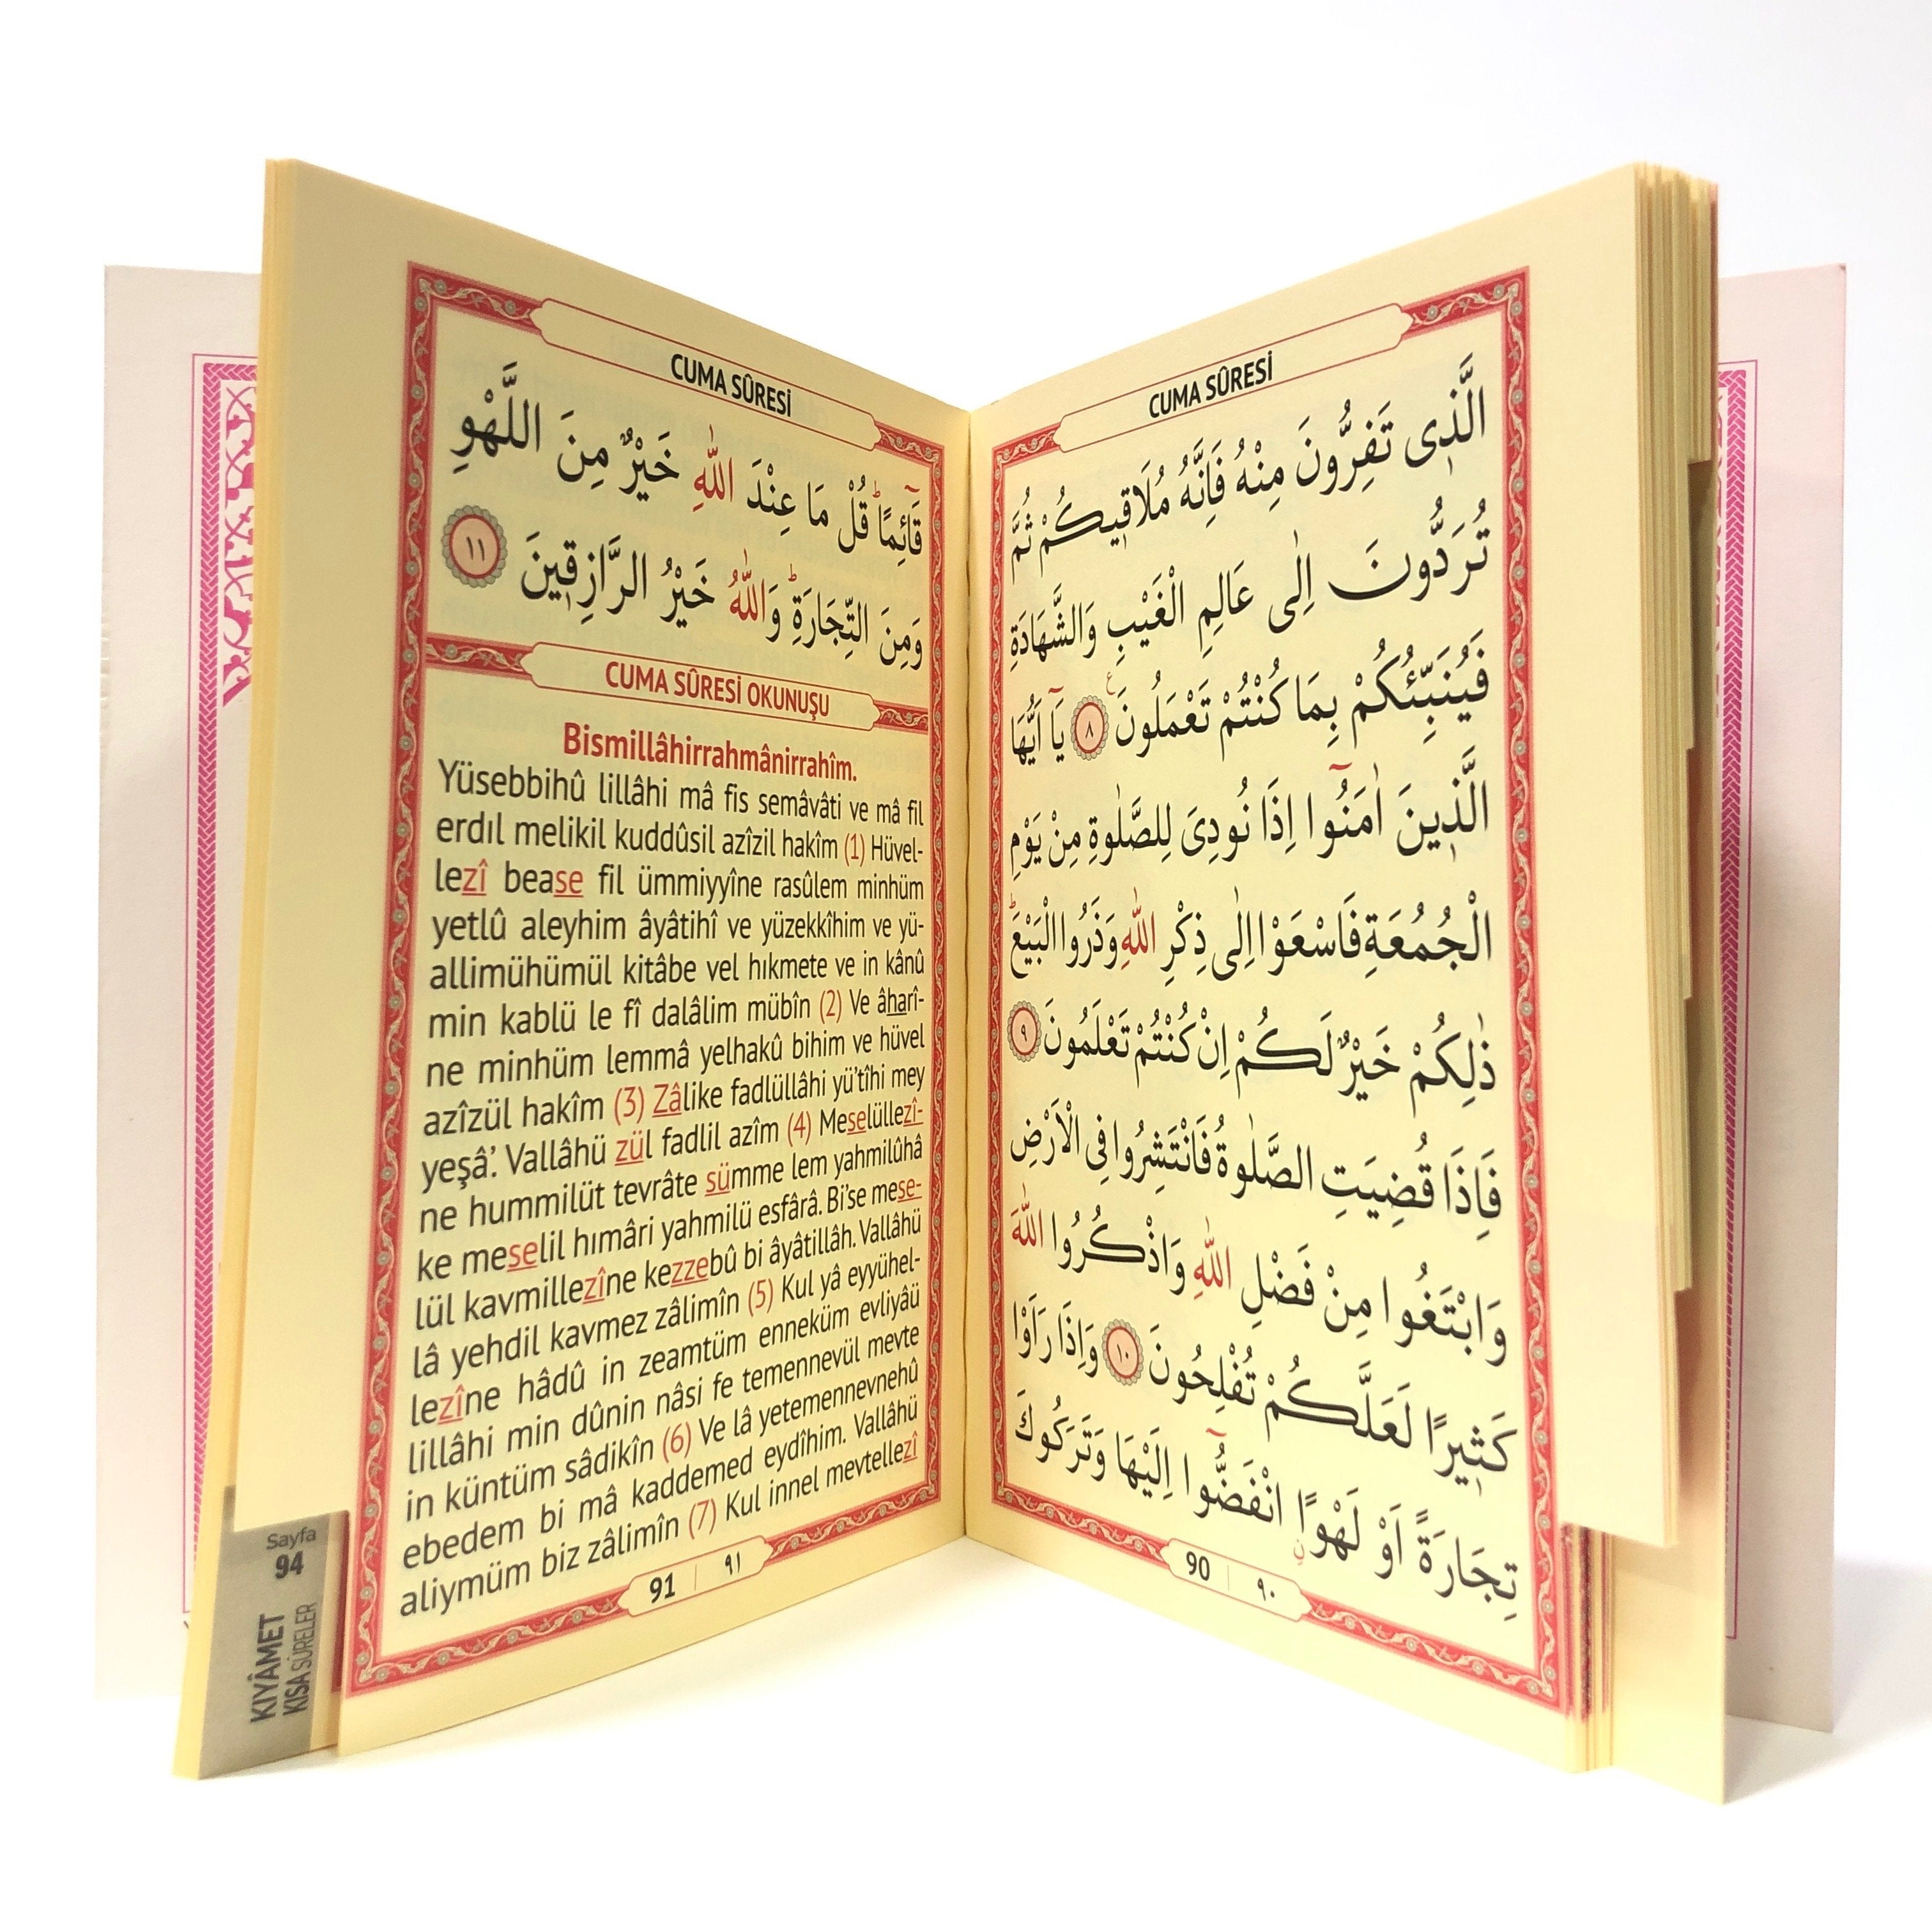 CUMA SÛRESİ
الَّذ۪ى تَفِرُّونَ مِنْهُ فَاِنَّهُ مُلَاق۪يكُمْ ثُمَّ
تُرَدُّونَ اِلٰى عَالِمِ الْغَيْبِ وَالشَّهَادَةِ
فَيُنَبِّئُكُمْ بِمَا كُنْتُمْ تَعْمَلُونَ ﴿٨﴾ يَٓا اَيُّهَا
الَّذ۪ينَ اٰمَنُٓوا اِذَا نُودِىَ لِلصَّلٰوةِ مِنْ يَوْمِ
الْجُمُعَةِ فَاسْعَوْا اِلٰى ذِكْرِ اللّٰهِ وَذَرُوا الْبَيْعَۜ
ذٰلِكُمْ خَيْرٌ لَكُمْ اِنْ كُنْتُمْ تَعْلَمُونَ ﴿٩﴾
فَاِذَا قُضِيَتِ الصَّلٰوةُ فَانْتَشِرُوا فِى الْاَرْضِ
وَابْتَغُوا مِنْ فَضْلِ اللّٰهِ وَاذْكُرُوا اللّٰهَ
كَث۪يرًا لَعَلَّكُمْ تُفْلِحُونَ ﴿١٠﴾ وَاِذَا رَاَوْا
تِجَارَةً اَوْ لَهْوًاۨ انْفَضُّٓوا اِلَيْهَا وَتَرَكُوكَ
90 | ٩٠
CUMA SÛRESİ
قَٓائِمًاۜ قُلْ مَا عِنْدَ اللّٰهِ خَيْرٌ مِنَ اللَّهْوِ
وَمِنَ التِّجَارَةِۜ وَاللّٰهُ خَيْرُ الرَّازِق۪ينَ ﴿١١﴾
CUMA SÛRESİ OKUNUŞU
Bismillâhirrahmânirrahîm.
Yüsebbihû lillâhi mâ fis semâvâti ve mâ fil
erdıl melikil kuddûsil azîzil hakîm (1) Hüvel-
lezî bease fil ümmiyyîne rasûlem minhüm
yetlû aleyhim âyâtihî ve yüzekkîhim ve yü-
allimühümül kitâbe vel hıkmete ve in kânû
min kablü le fî dalâlim mübîn (2) Ve âharî-
ne minhüm lemmâ yelhakû bihim ve hüvel
azîzül hakîm (3) Zâlike fadlüllâhi yü'tîhi mey
yeşâ'. Vallâhü zül fadlil azîm (4) Meselüllezî-
ne hummilüt tevrâte sümme lem yahmilûhâ
ke meselil hımâri yahmilü esfârâ. Bi'se mese-
lül kavmillezîne kezzebû bi âyâtillâh. Vallâhü
lâ yehdil kavmez zâlimîn (5) Kul yâ eyyühel-
lezîne hâdû in zeamtüm enneküm evliyâü
lillâhi min dûnin nâsi fe temennevül mevte
in küntüm sâdikîn (6) Ve lâ yetemennevnehû
ebedem bi mâ kaddemed eydîhim. Vallâhü
aliymüm biz zâlimîn (7) Kul innel mevtellezî
91 | ٩١
Sayfa
94
KIYÂMET
KISA SÛRELER